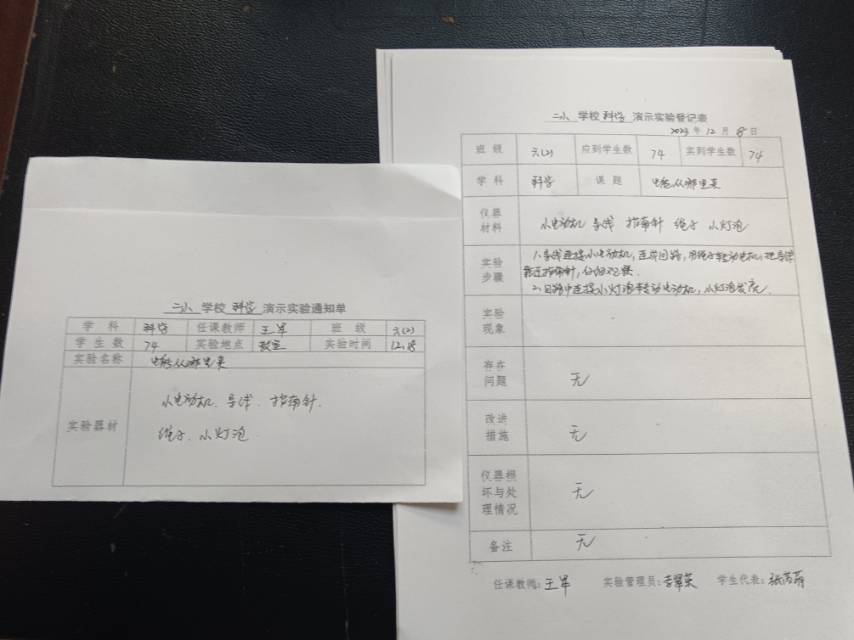 二小 学校 科学 演示实验通知单
学科 科学 任课教师 王军 班级 六(2)
学生数 74 实验地点 教室 实验时间 12.8
实验名称 电能从哪里来
实验器材 小电动机、导线、指南针、
绳子、小灯泡
二小 学校 科学 演示实验登记表
2023 年 12 月 8 日
班级 六(2) 应到学生数 74 实到学生数 74
学科 科学 课题 电能从哪里来
仪器材料 小电动机 导线 指南针 绳子 小灯泡
实验步骤 1.导线连接小电动机,连成回路,用绳子转动电机,把导线
靠近指南针,仔细观察.
2.回路中连接小灯泡转动电动机,小灯泡发光.
实验现象
存在问题 无
改进措施 无
仪器损坏与处理情况 无
备注 无
任课教师:王军 实验管理员: 学生代表: